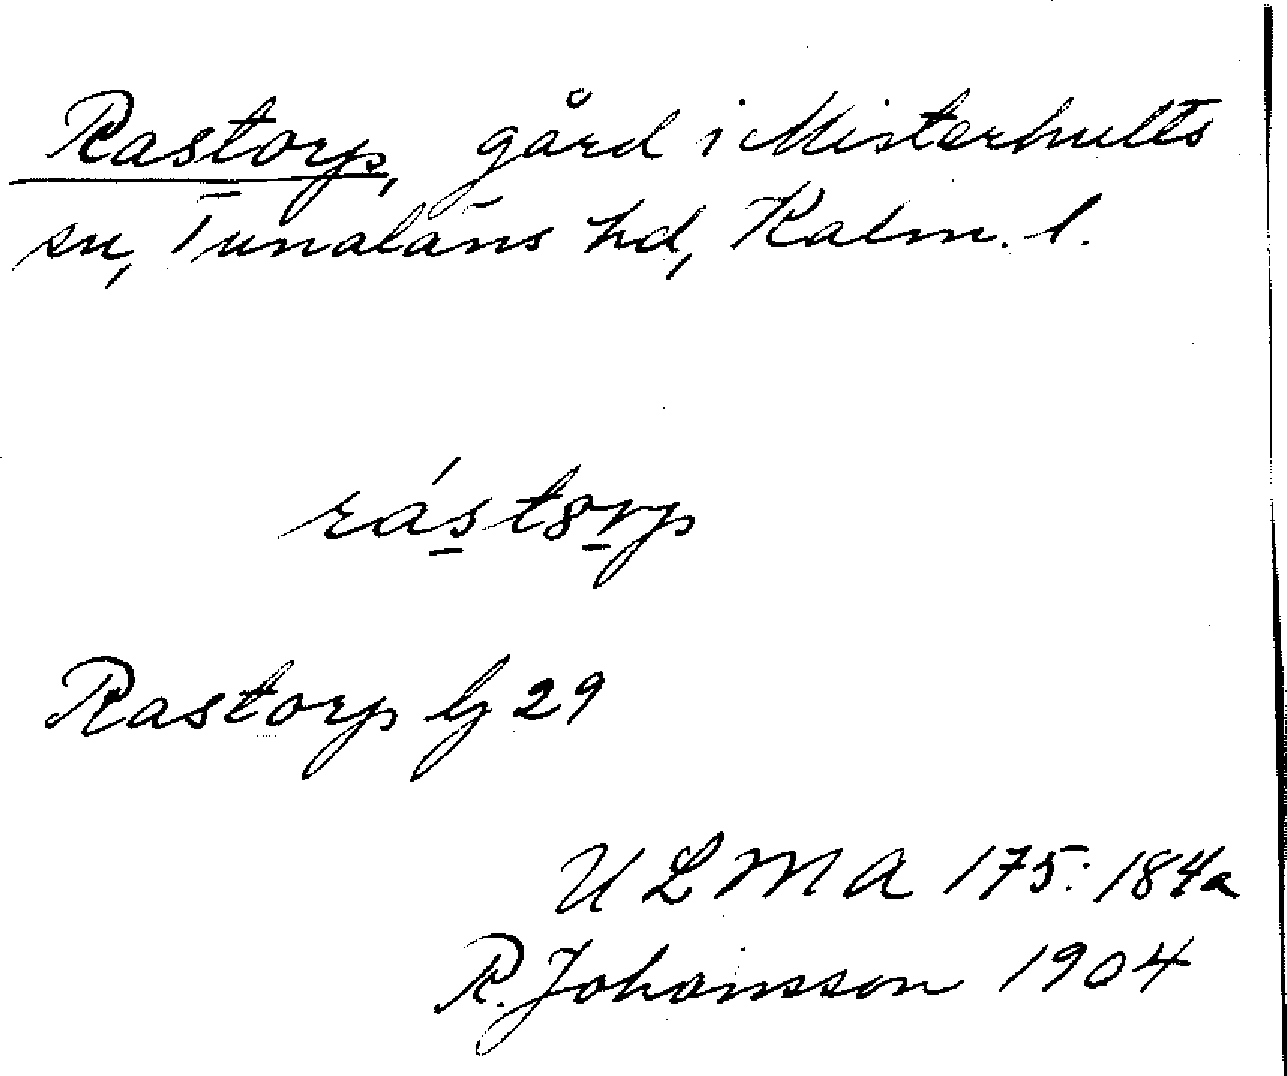 Rastorp, gård i Misterhults
sn, Tunaläns hd, Kalm. l.
rást8rp
Rastorp Gj 29
ULMA 175:184a
R. Johansson 1904